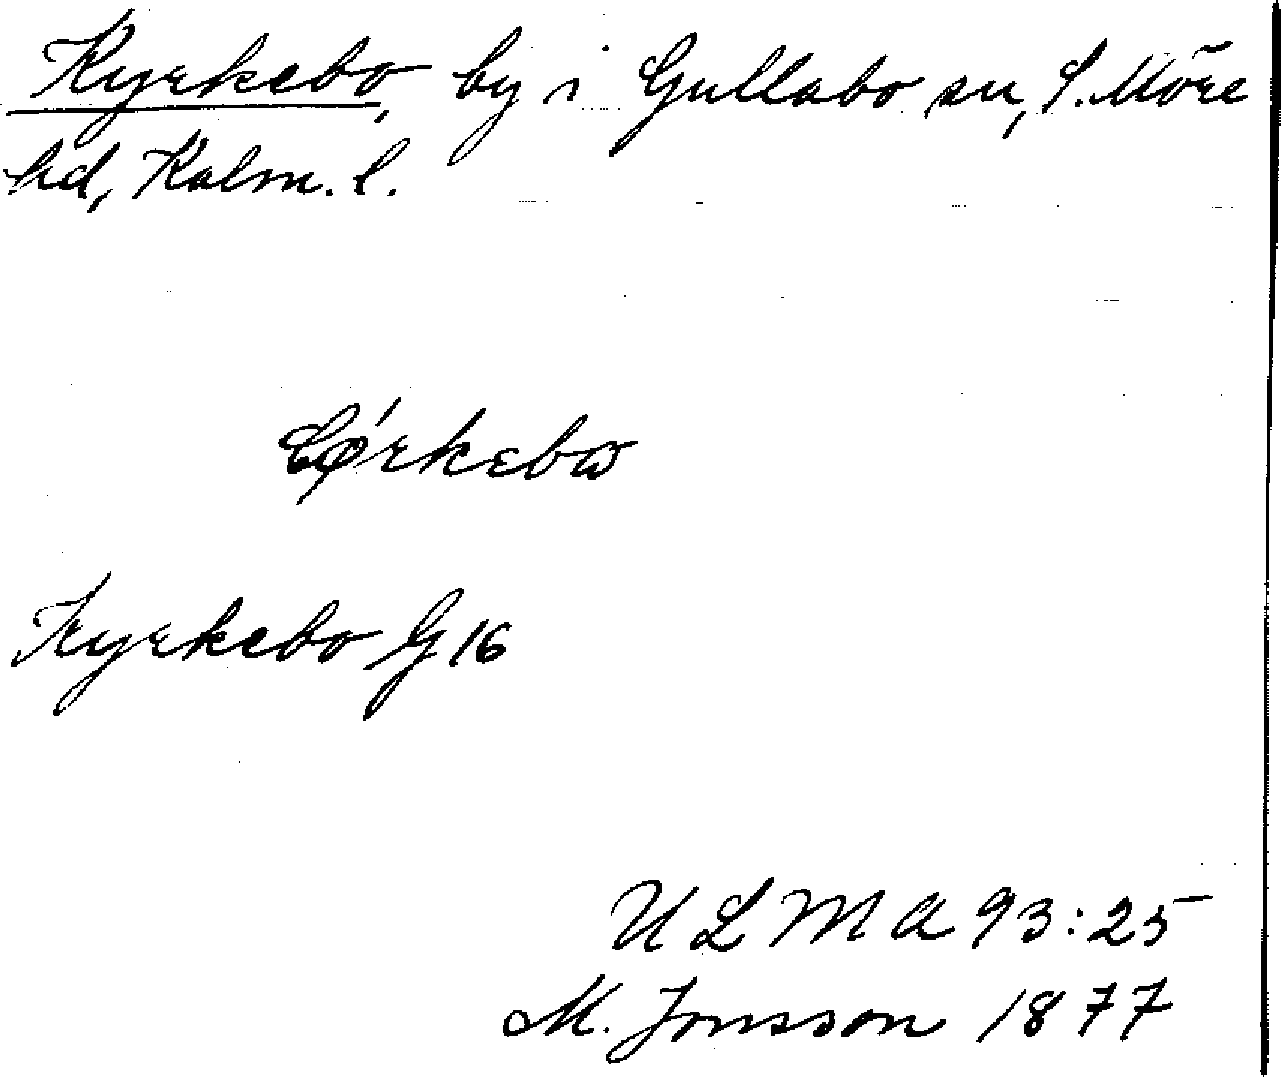 Kyrkebo, by i Gullabo sn, S. Möre
hd, Kalm. l.
Kyrkebo G 16
U L M A 93:25
M. Jonsson 1877